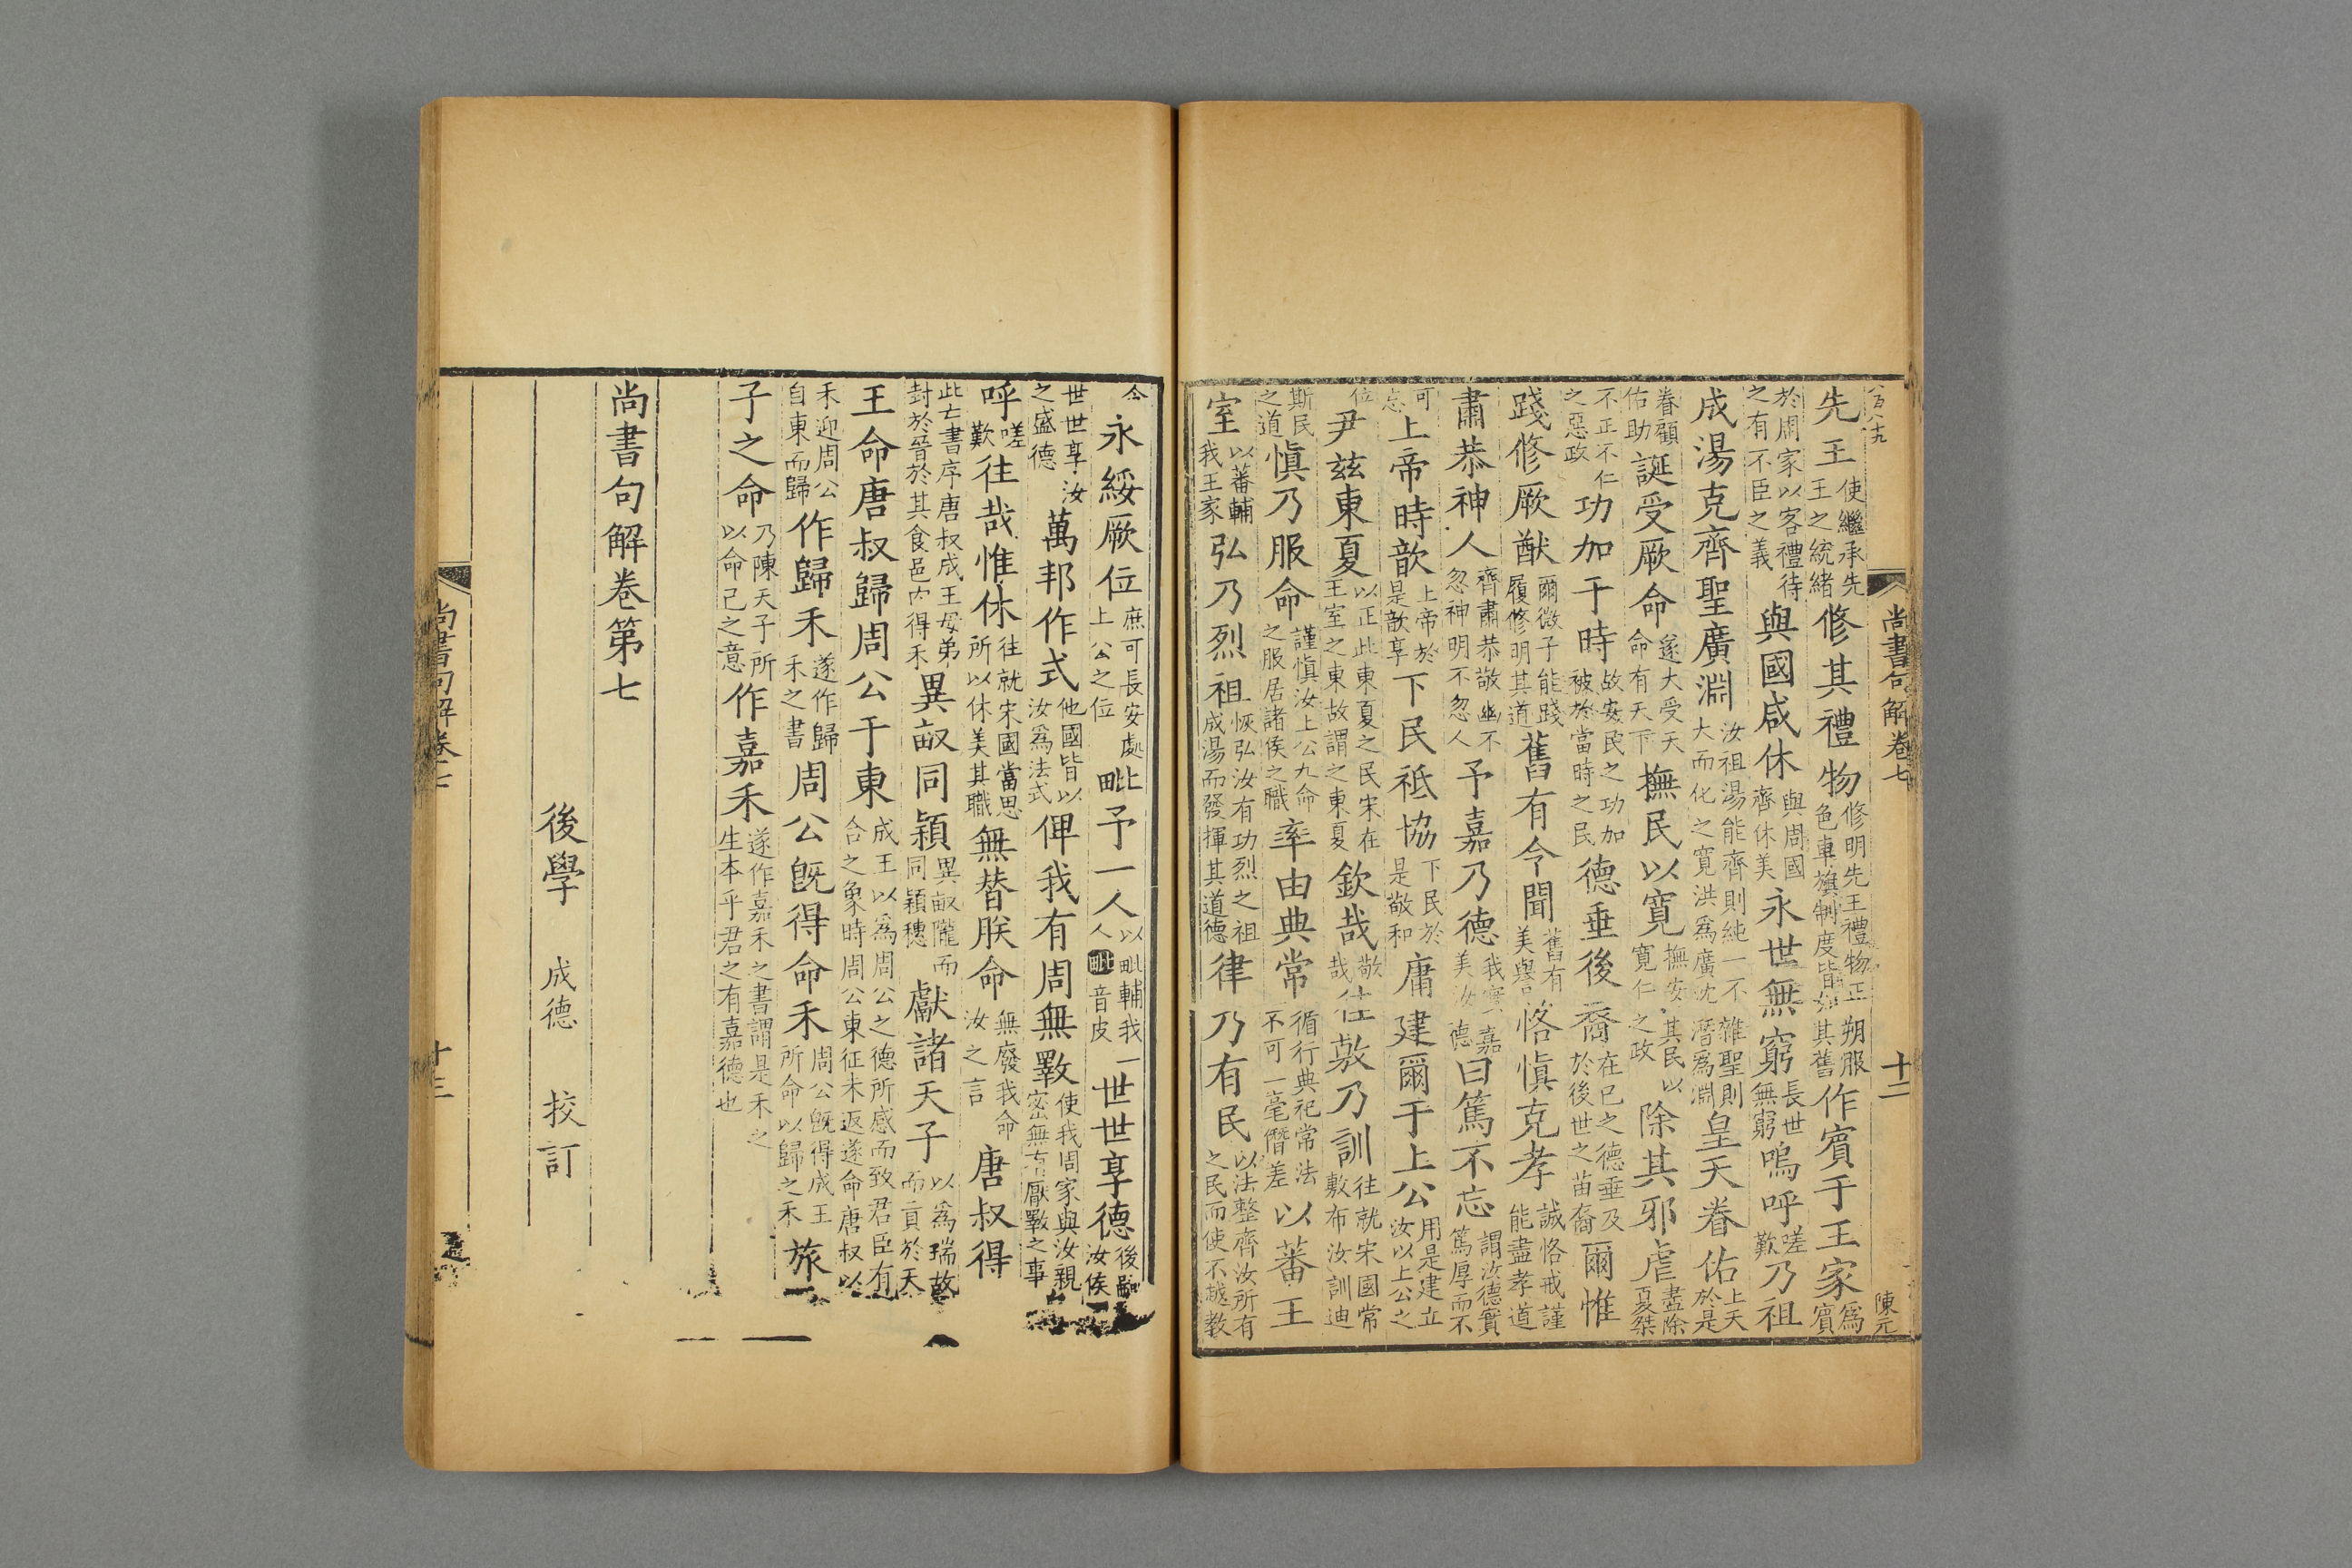 尚書句解卷七
十二
陳元
先王使繼承先王之統緒修其禮物修明先王禮物正朔服色車旗制度皆如其舊作賓于王家爲賓
於周家以客禮待之有不臣之義與國咸休與周國齊休美永世無窮長世無窮嗚呼嗟歎乃祖
成湯克齊聖廣淵汝祖湯能齊則純一不雜聖則大而化之寬洪爲廣沈潛爲淵皇天眷佑上天於是
眷顧佑助誕受厥命遂大受天命有天下撫民以寬撫安其民以寬仁之政除其邪虐盡除夏桀
不正不仁之惡政功加于時故安民之功加被於當時之民德垂後裔在已之德垂及於後世之苗裔爾惟
踐修厥猷爾微子能踐履修明其道舊有令聞舊有美譽恪慎克孝誠恪戒謹能盡孝道
肅恭神人齊肅恭敬幽不忽神明明不忽人予嘉乃德我實嘉美汝德曰篤不忘謂汝德實篤厚而不
可忘上帝時歆上帝於是歆享下民祇協下民於是敬和庸建爾于上公用是建立汝以上公之
位尹茲東夏以正此東夏之民宋在王室之東故謂之東夏欽哉敬哉往敷乃訓往就宋國常敷布汝訓迪
斯民之道慎乃服命謹慎汝上公九命之服居諸侯之職率由典常循行典祀常法不可一毫僭差以蕃王
室以蕃輔我王家弘乃烈祖恢弘汝有功烈之祖成湯而發揮其道德律乃有民以法整齊汝所有之民而使不越教
令永綏厥位庶可長安處上公之位毗予一人以毗輔我一人毗音皮世世享德後嗣汝侯
世世享汝之盛德萬邦作式他國皆以汝爲法式俾我有周無斁使我周家與汝親密無有厭斁之事嗚
呼嗟歎往哉惟休往就宋國當思所以休美其職無替朕命無廢我命汝之言唐叔得
此亡書序唐叔成王母弟封於晉於其食邑内得禾異畝同穎異畝隴而同穎穗獻諸天子以爲瑞故而貢於天
王命唐叔歸周公于東成王以爲周公之德所感而致君臣有合之象時周公東征未返遂命唐叔以
禾迎周公自東而歸作歸禾遂作歸禾之書周公旣得命禾周公旣得成王所命以歸之禾旅
子之命乃陳天子所以命己之意作嘉禾遂作嘉禾之書謂是禾之生本乎君之有嘉德也
尚書句解卷第七
後學 成德 挍訂